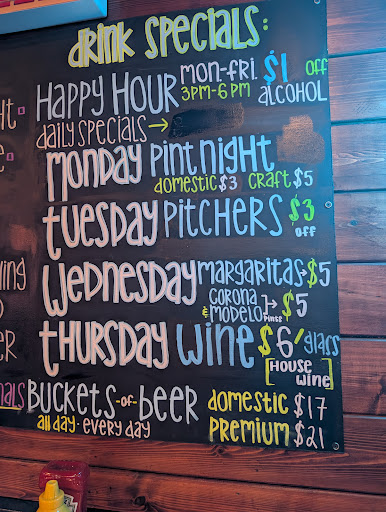 drink specials:
Happy Hour mon-fri. $1 off
3pm-6pm alcohol
daily specials →
monday pint night
domestic $3 craft $5
tuesday pitchers $3
off
wednesday margaritas → $5
corona
& modelo pints → $5
thursday wine $6/glass
[house wine]
Buckets-of-Beer domestic $17
all day · every day premium $21